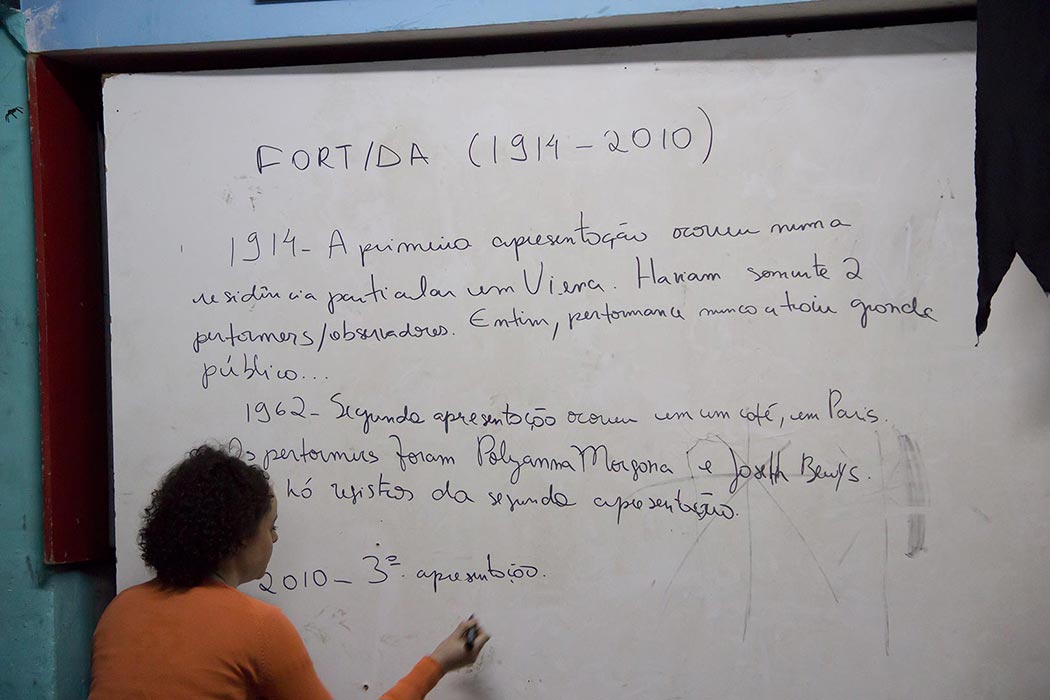 FORT/DA (1914-2010)
1914- A primeira apresentação ocorreu numa
residência particular em Viena. Haviam somente 2
performers/observadores. Enfim, performance nunca atraiu grande
público...
1962- Segunda apresentação ocorreu em um café, em Paris.
Os performers foram Polyanna Morgana e Joseph Beuys.
há registros da segunda apresentação.
2010- 3ª. apresentação.